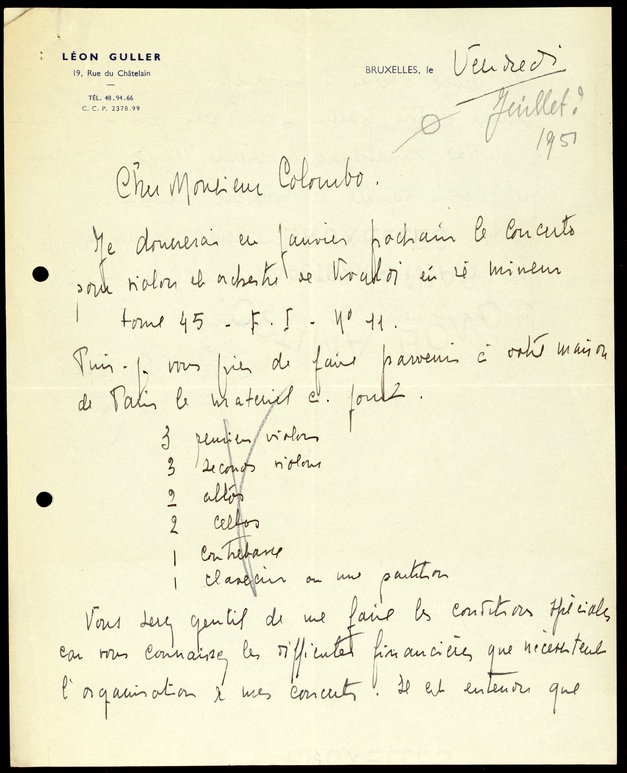 LÉON GULLER
19, Rue du Châtelain
TÉL. 48.94.66
C. C. P. 2378.99
BRUXELLES, le Vendredi
Juillet?
1951
Cher Monsieur Colombo.
Je donnerai en Janvier prochain le Concerto
pour violon et orchestre de Vivaldi en ré mineur
tome 45 - F. I - N° 11.
Puis-je vous prier de faire parvenir à votre maison
de Paris le matériel
3 premiers violons
3 seconds violons
2 altos
2 cellos
1 contrebasse
1 clavecin ou une partition
Vous serez gentil de me faire les conditions spéciales
car vous connaissez les difficultés financières que nécessitent
l'organisation de mes concerts. Il est entendu que